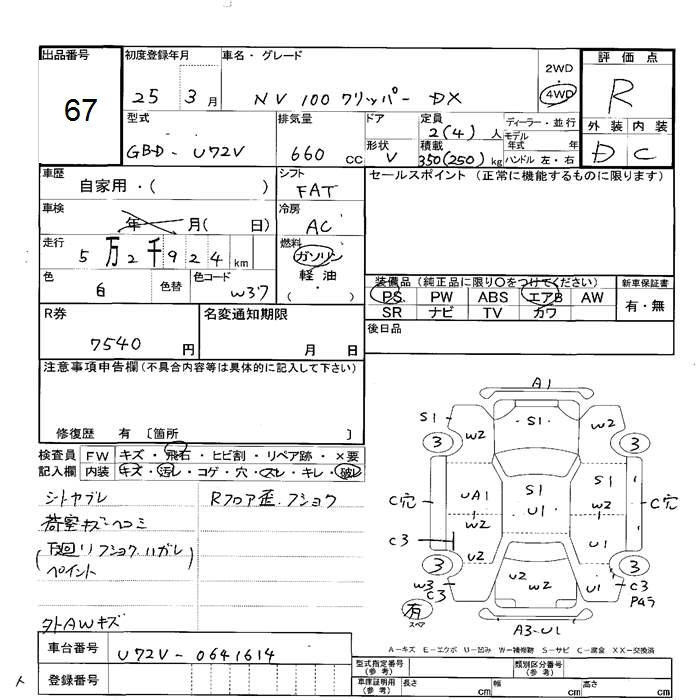 出品番号
67
初度登録年月
25 3月
車名・グレード
NV100クリッパー DX
2WD
4WD
評価点
R
外装 内装
D C
型式
GBD-U72V
排気量
660 CC
ドア
形状
V
定員
2(4)人
積載
350(250)kg
ディーラー・並行
モデル
年式 年
ハンドル 左・右
車歴
自家用・( )
シフト
FAT
セールスポイント (正常に機能するものに限ります)
車検
年 月( 日)
冷房
AC
走行
5万2千924km
燃料
ガソリン
軽油
( )
色
白
色替
色コード
W37
装備品 (純正品に限り○をつけてください)
PS PW ABS エアB AW
SR ナビ TV カワ
新車保証書
有・無
後日品
R券
7540円
名変通知期限
月 日
注意事項申告欄(不具合内容等は具体的に記入して下さい)
修復歴 有 〔箇所 〕
検査員
記入欄
FW キズ・飛石・ヒビ割・リペア跡・×要
内装 キズ・汚レ・コゲ・穴・スレ・キレ・破レ
シトヤブレ
荷室キズヘコミ
(下回リフショクハガレ
ペイント
外AWキズ
Rフロア歪.フショク
A1
S1
W2
S1
W2
3
3
C穴
UA1
W2
S1
U1
S1
W2
C穴
C3
U2
U1
3
3
W3
C3
U2
W2
U1
C3
Pムラ
有
スペア
A3-U1
A-キズ E-エクボ U-凹み W-補修跡 S-サビ C-腐食 XX-交換済
車台番号
U72V-0641614
登録番号
型式指定番号
(参考)
類別区分番号
(参考)
車庫証明用
(参考)
長さ cm
幅 cm
高さ cm